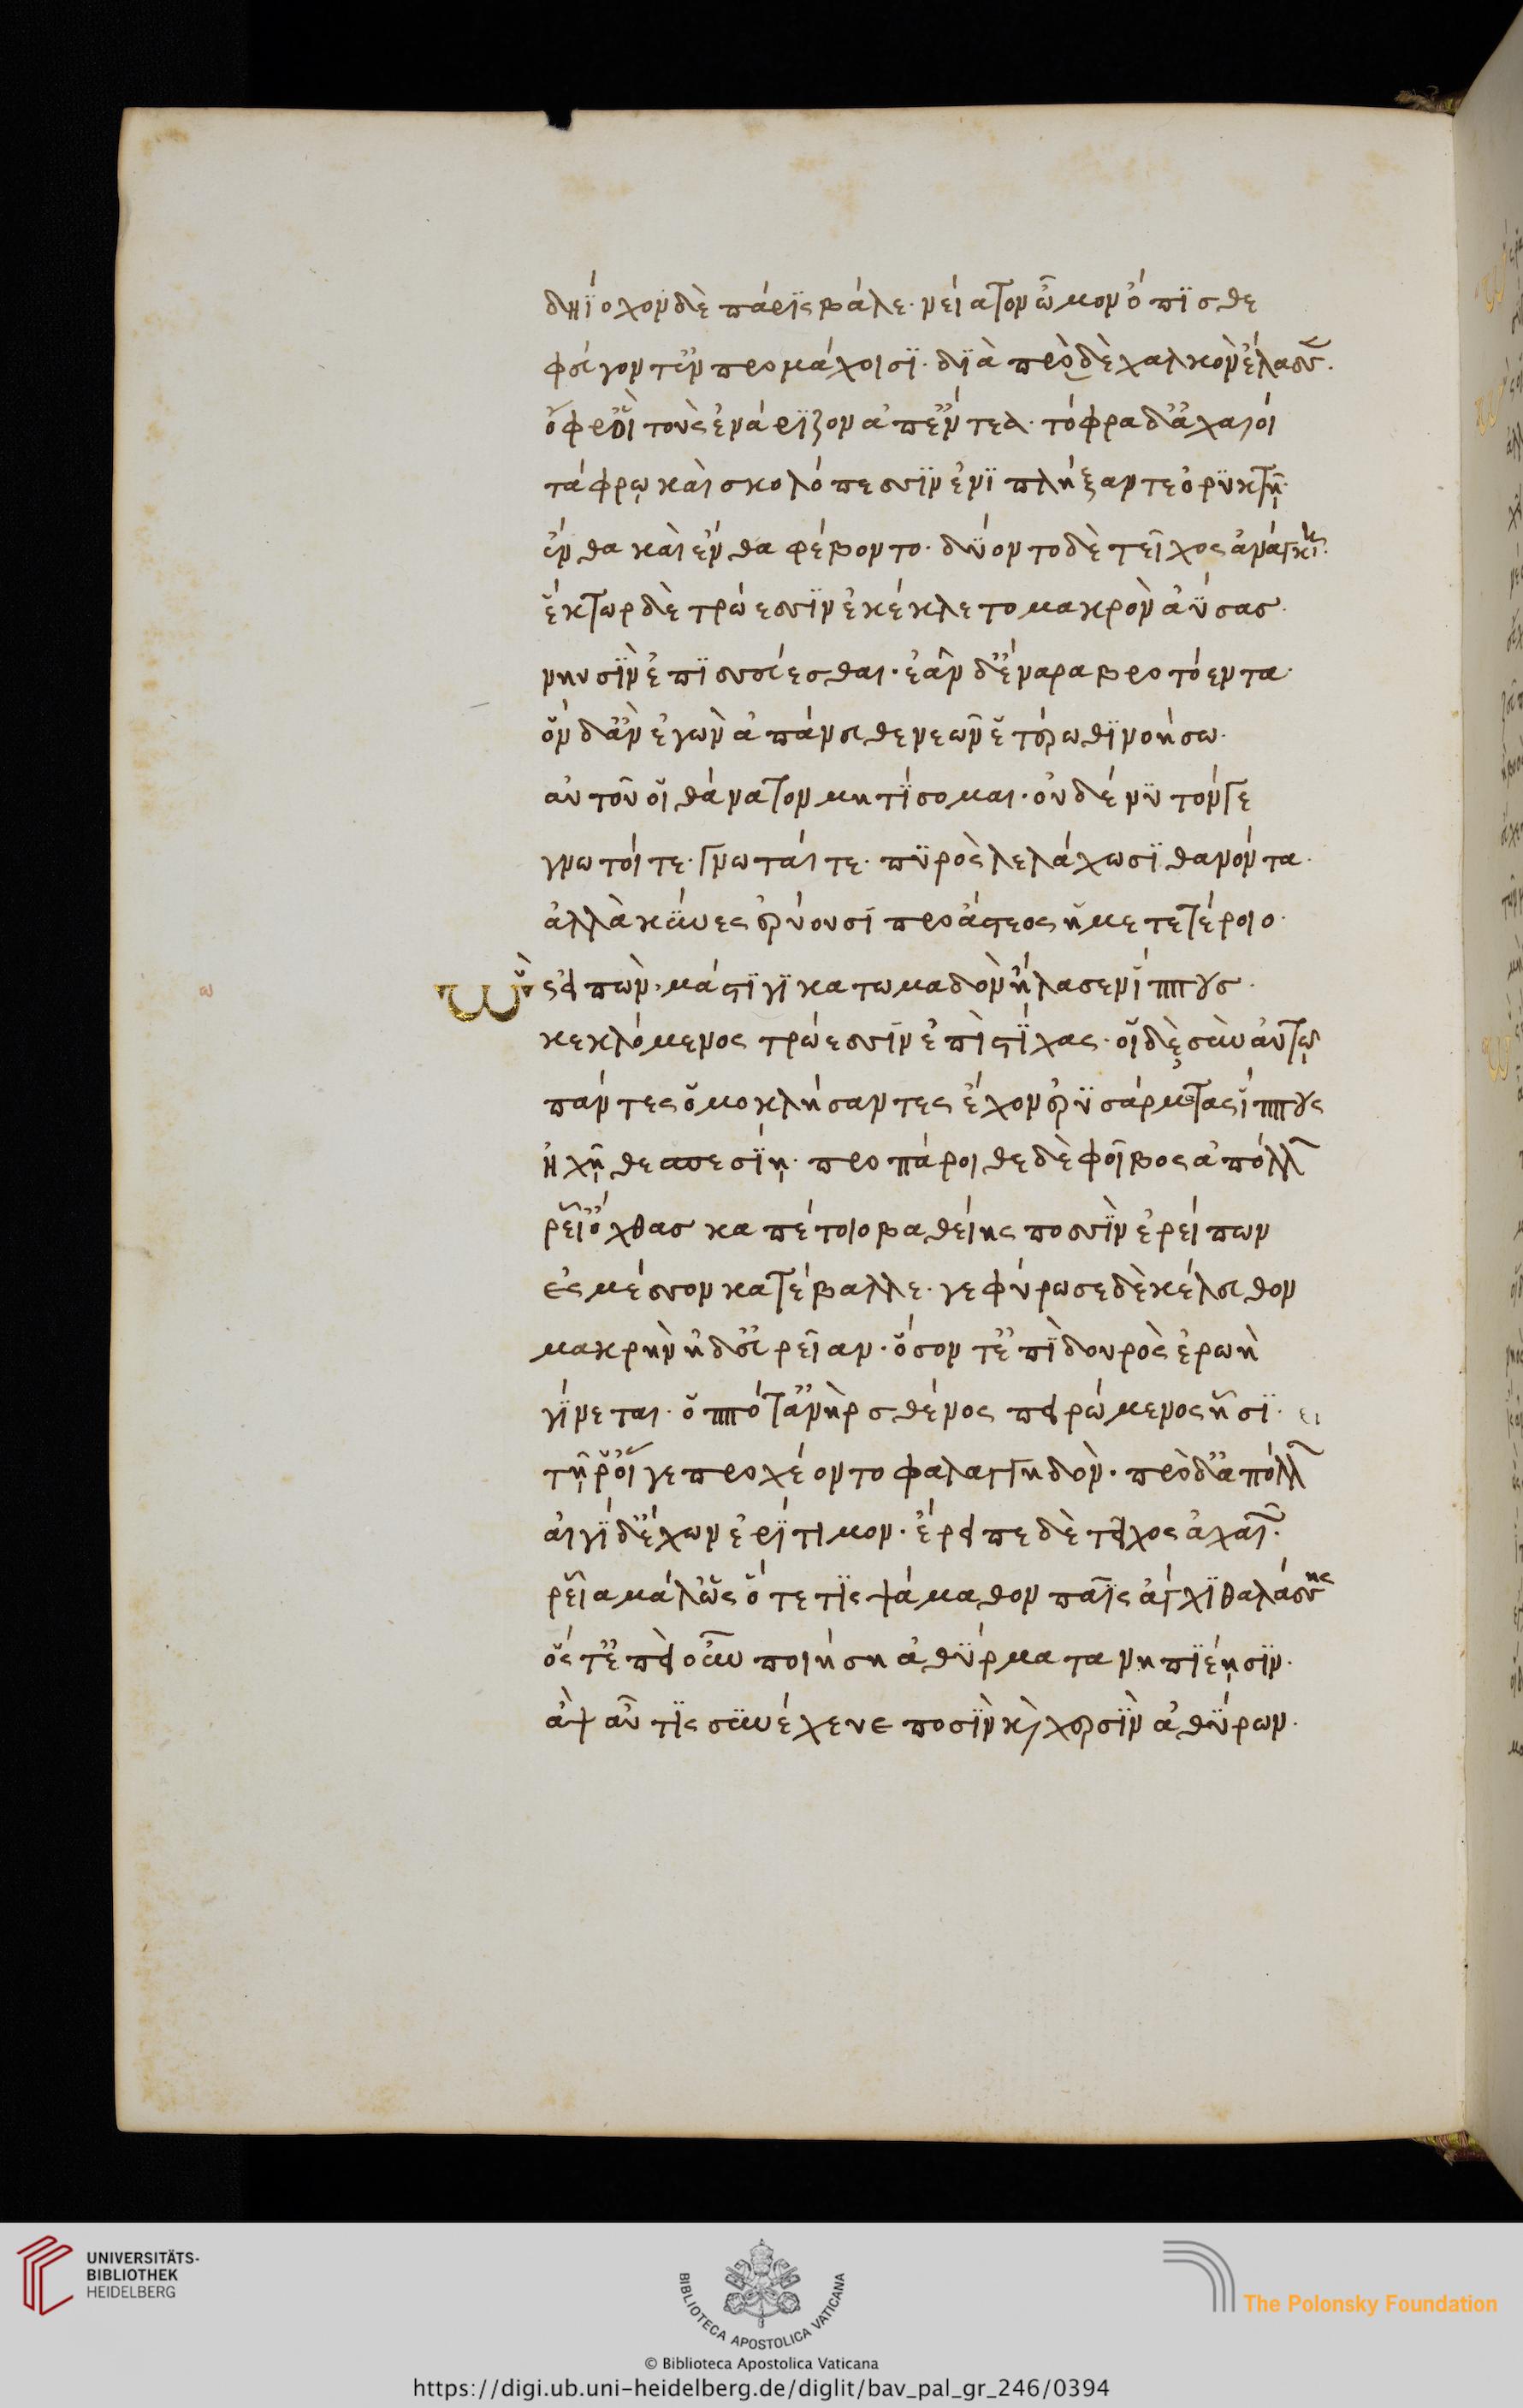 δηΐοχον δὲ πάρις βάλε· νείατον ὦμον ὄπισθε
φεύγοντ' ἐν προμάχοισι· διὰ πρὸ δὲ χαλκὸν ἔλασσε.
ὄφρ' οἳ τοὺς ἐνάριζον ἀπ' ἔντεα· τόφρα δ' ἀχαιοί
τάφρῳ καὶ σκολόπεσσιν ἐνιπλήξαντε ὀρυκτῇ·
ἔνθα καὶ ἔνθα φέβοντο· δύοντο δὲ τεῖχος ἀνάγκη.
ἕκτωρ δὲ τρώεσσιν ἐκέκλετο μακρὸν ἀΰσας·
νηυσὶν ἐπισσεύεσθαι· ἐᾶν δ' ἔναρα βροτόεντα·
ὃν δ' ἂν ἐγὼν ἀπάνευθε νεῶν ἑτέρωθι νοήσω·
αὐτοῦ οἱ θάνατον μητίσομαι· οὐδέ νυ τόνγε
γνωτοί τε· γνωταί τε· πυρὸς λελάχωσι θανόντα·
ἀλλὰ κύνες ἐρύουσι πρὸ ἄστεος ἡμετετέροιο·
Ὣς εἰπὼν· μάστιγι κατωμαδὸν ἤλασεν ἵππους·
κεκλόμενος τρώεσσιν ἐπὶ στίχας· οἱ δὲ σὺν αὐτῷ
πάντες ὁμοκλήσαντες ἔχον ἐρυσάρματας ἵππους
ἠχῇ θεσπεσίῃ· προπάροιθε δὲ φοῖβος ἀπόλλων
ῥεῖ' ὄχθας καπέτοιο βαθείης ποσσὶν ἐρείπων
ἐς μέσσον κατέβαλλε· γεφύρωσε δὲ κέλευθον
μακρὴν ἠδ' εὐρεῖαν· ὅσον τ' ἐπὶ δουρὸς ἐρωὴ
γίνεται· ὁππότ' ἀνὴρ σθένος πειρώμενος ᾗσι·
τῇ ῥ' οἵ γε προχέοντο φαλαγγηδὸν· πρὸ δ' ἀπόλλων
αἰγίδ' ἔχων ἐρίτιμον· ἔρειπε δὲ τεῖχος ἀχαιῶν·
ῥεῖα μάλ' ὡς ὅτε τις ψάμαθον παῖς ἄγχι θαλάσσης
ὅς τ' ἐπεὶ οὖν ποιήσῃ ἀθύρματα νηπιέῃσιν·
ἂψ αὖτις συνέχευε ποσὶν καὶ χερσὶν ἀθύρων·
ω
UNIVERSITÄTS-
BIBLIOTHEK
HEIDELBERG
BIBLIOTECA APOSTOLICA VATICANA
The Polonsky Foundation
© Biblioteca Apostolica Vaticana
https://digi.ub.uni-heidelberg.de/diglit/bav_pal_gr_246/0394